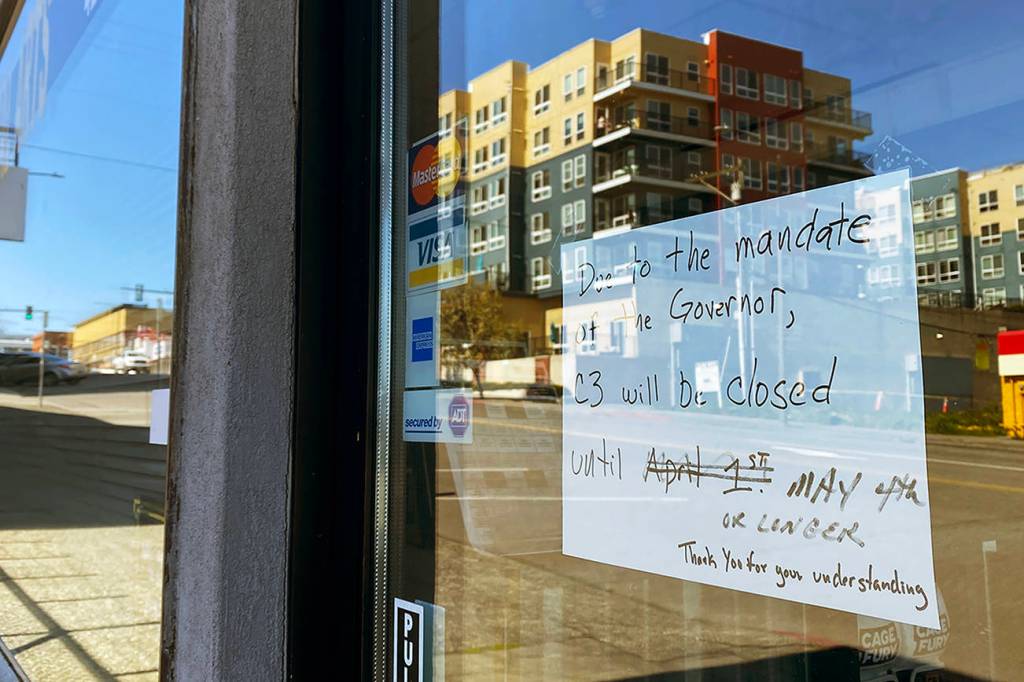 MasterCard
VISA
AMERICAN EXPRESS
secured by ADT
Due to the mandate
of the Governor,
C3 will be closed
until April 1ST. MAY 4th
OR LONGER
Thank You for your understanding
PUL
CAGE FURY
CAGE FURY